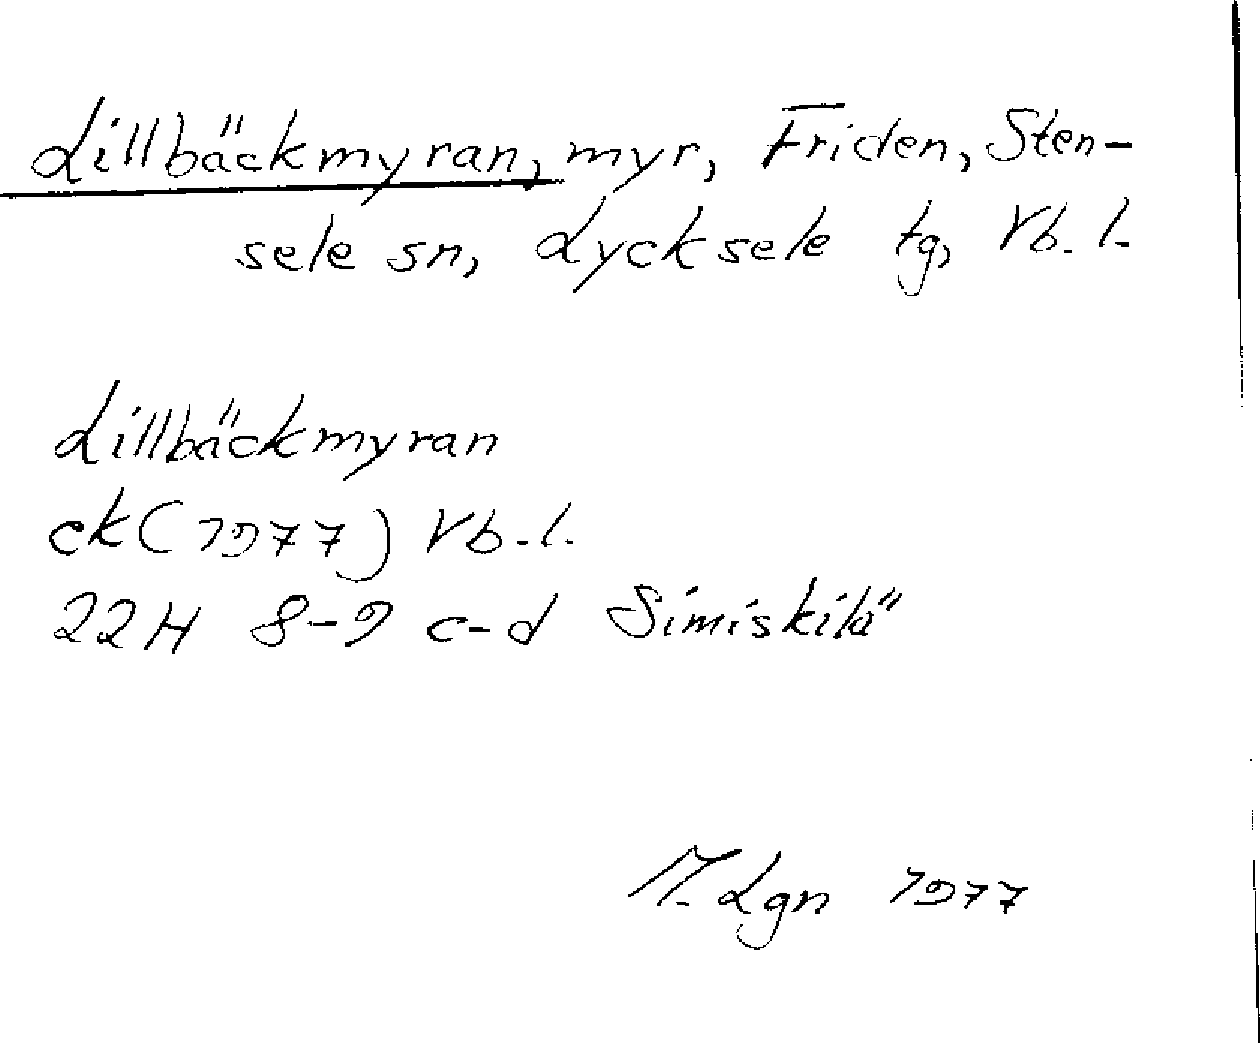 Lillbäckmyran, myr, Friden, Sten-
sele sn, Lycksele tg, Vb. l.
Lillbäckmyran
ek (1977) Vb. l.
22H 8-9 c-d Simiskilä
M. Lgn 1977